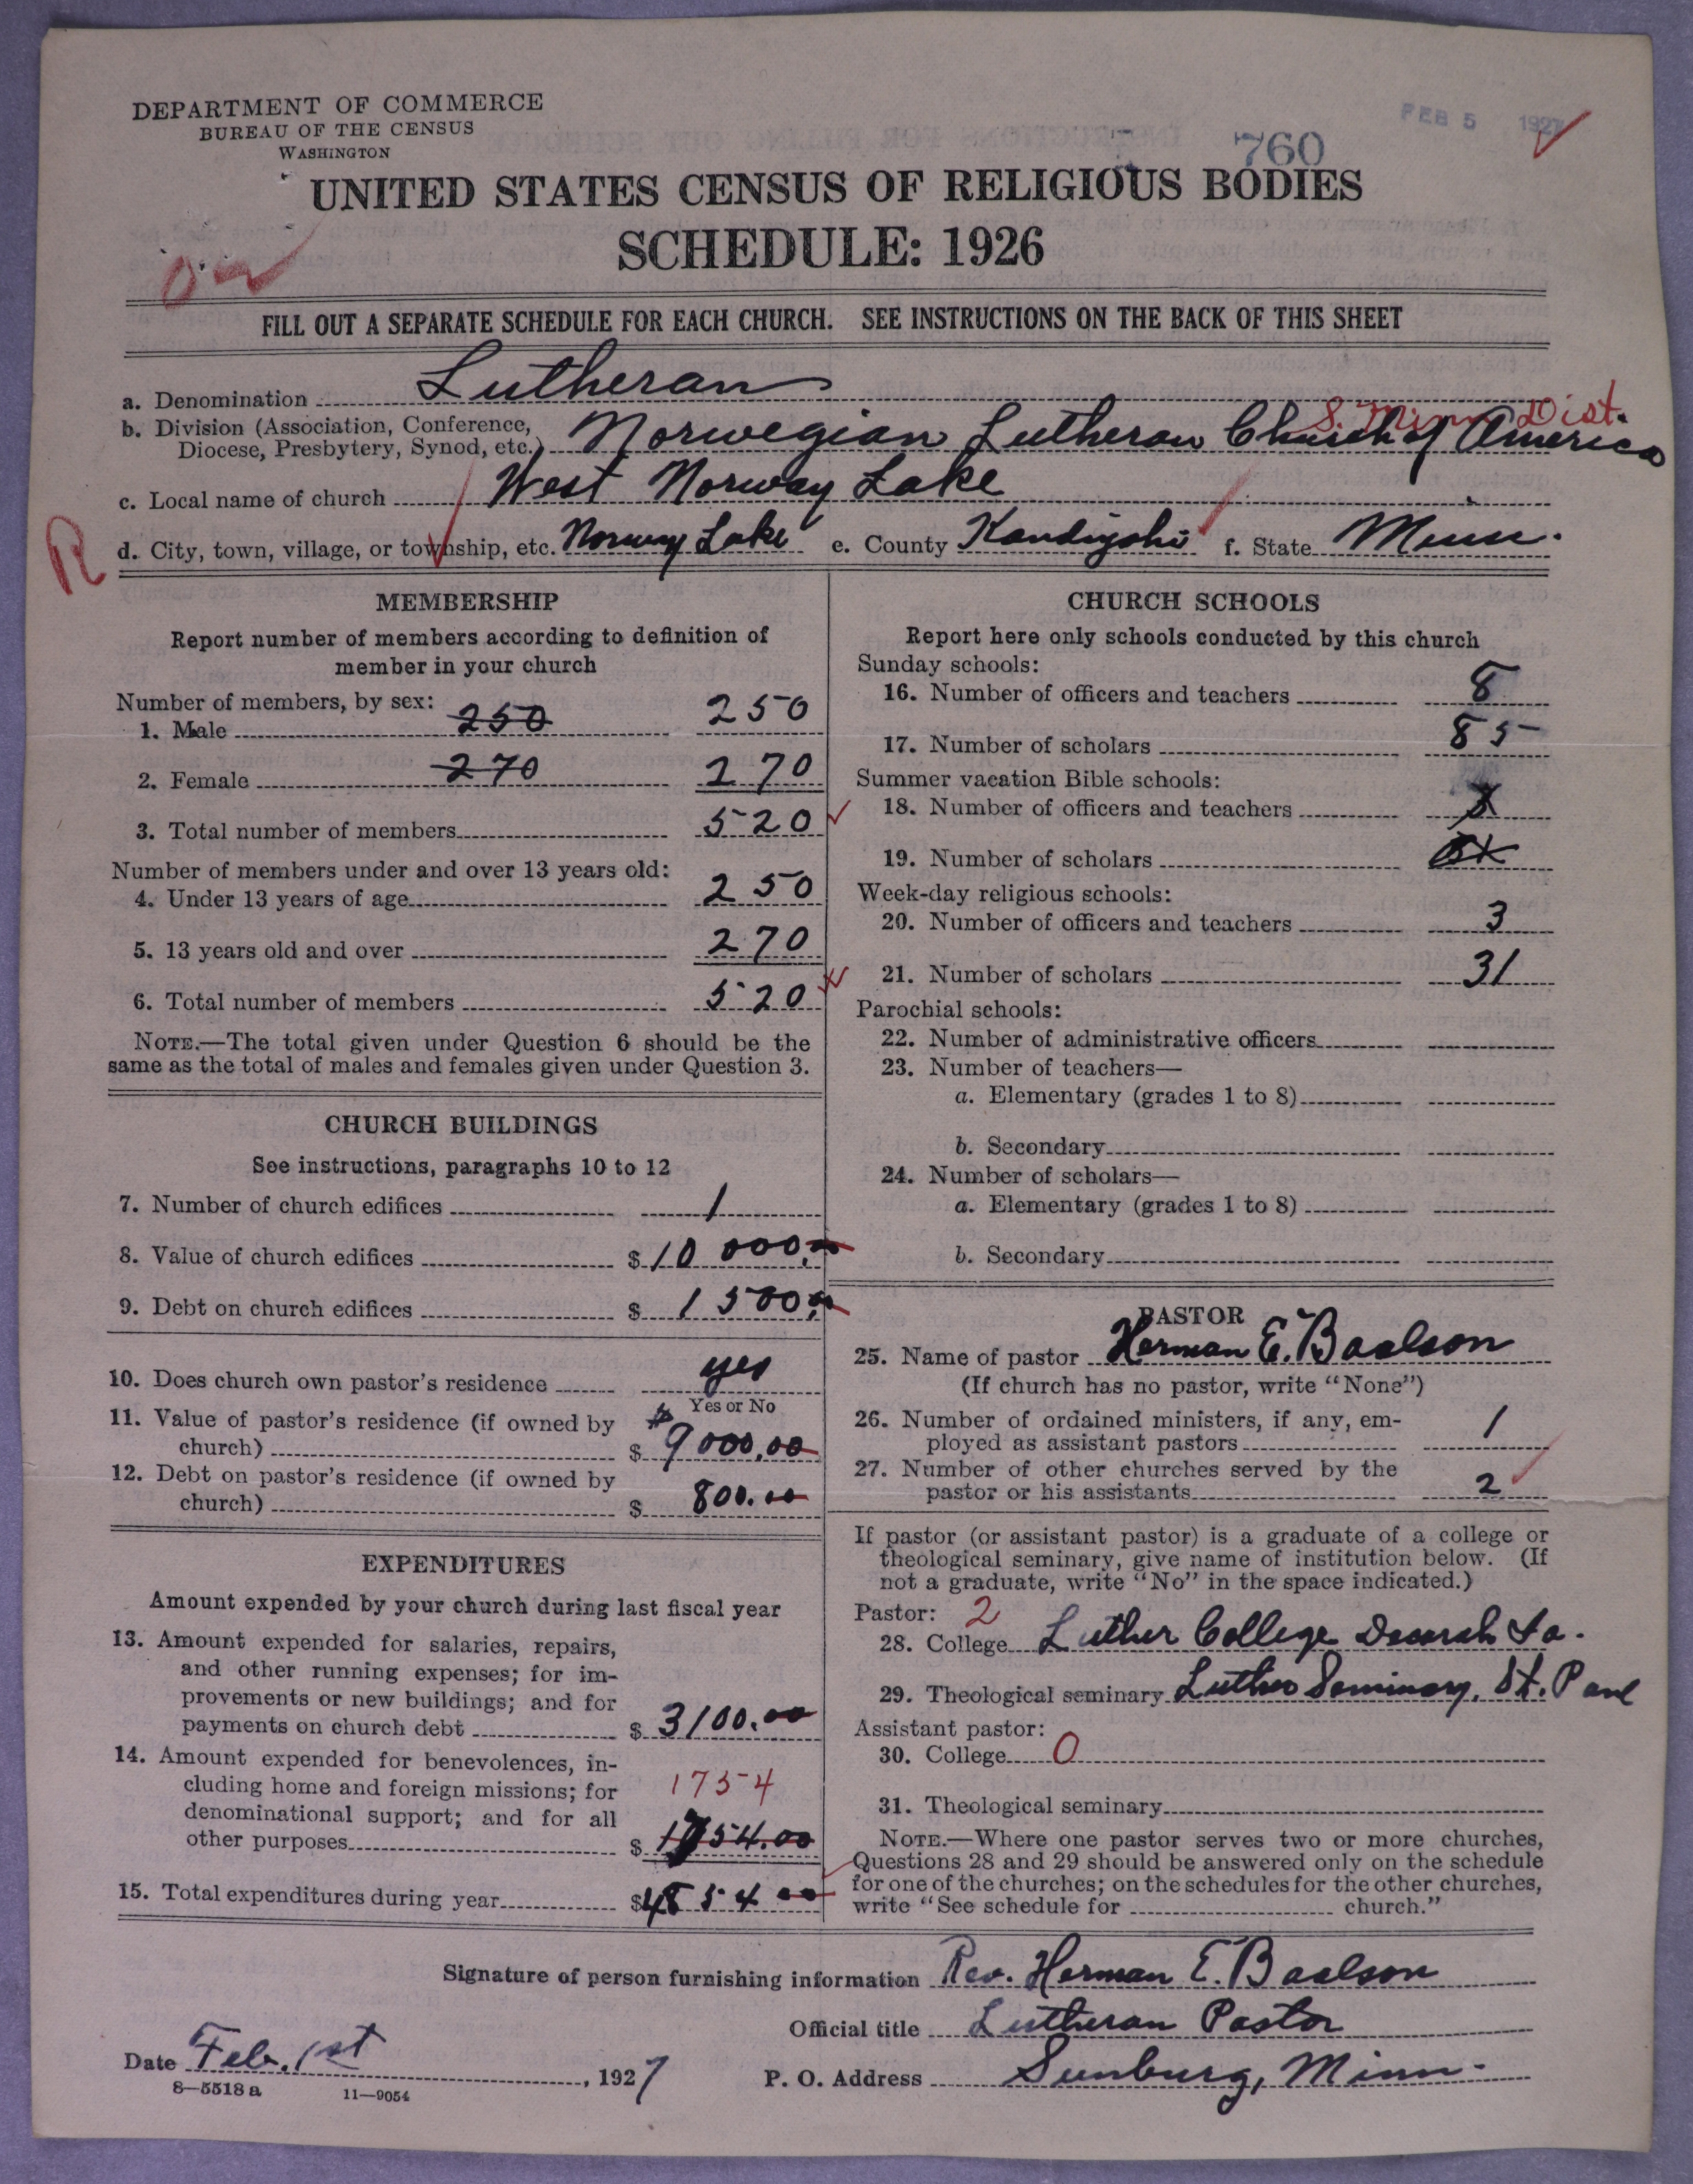 DEPARTMENT OF COMMERCE
BUREAU OF THE CENSUS
WASHINGTON
FEB 5 1927
760
UNITED STATES CENSUS OF RELIGIOUS BODIES
SCHEDULE: 1926
FILL OUT A SEPARATE SCHEDULE FOR EACH CHURCH. SEE INSTRUCTIONS ON THE BACK OF THIS SHEET
a. Denomination Lutheran
S. Minn Dist.
b. Division (Association, Conference, Diocese, Presbytery, Synod, etc.) Norwegian Lutheran Church of America
c. Local name of church West Norway Lake
R
d. City, town, village, or township, etc. Norway Lake e. County Kandiyohi f. State Minn.
MEMBERSHIP
Report number of members according to definition of
member in your church
Number of members, by sex:
1. Male 250 250
2. Female 270 270
3. Total number of members 520
Number of members under and over 13 years old:
4. Under 13 years of age 250
5. 13 years old and over 270
6. Total number of members 520
NOTE.—The total given under Question 6 should be the
same as the total of males and females given under Question 3.
CHURCH BUILDINGS
See instructions, paragraphs 10 to 12
7. Number of church edifices 1
8. Value of church edifices $ 10 000.00
9. Debt on church edifices $ 1 500.00
10. Does church own pastor's residence yes
Yes or No
11. Value of pastor's residence (if owned by
church) $ 9000.00
12. Debt on pastor's residence (if owned by
church) $ 800.00
EXPENDITURES
Amount expended by your church during last fiscal year
13. Amount expended for salaries, repairs,
and other running expenses; for im-
provements or new buildings; and for
payments on church debt $ 3100.00
14. Amount expended for benevolences, in-
cluding home and foreign missions; for
denominational support; and for all
other purposes $ 1754.00
1754
15. Total expenditures during year $4854 00
CHURCH SCHOOLS
Report here only schools conducted by this church
Sunday schools:
16. Number of officers and teachers 8
17. Number of scholars 85
Summer vacation Bible schools:
18. Number of officers and teachers
19. Number of scholars
Week-day religious schools:
20. Number of officers and teachers 3
21. Number of scholars 31
Parochial schools:
22. Number of administrative officers
23. Number of teachers—
a. Elementary (grades 1 to 8)
b. Secondary
24. Number of scholars—
a. Elementary (grades 1 to 8)
b. Secondary
PASTOR
25. Name of pastor Herman E. Baalson
(If church has no pastor, write "None")
26. Number of ordained ministers, if any, em-
ployed as assistant pastors 1
27. Number of other churches served by the
pastor or his assistants 2
If pastor (or assistant pastor) is a graduate of a college or
theological seminary, give name of institution below. (If
not a graduate, write "No" in the space indicated.)
Pastor: 2
28. College Luther College Decorah Ia.
29. Theological seminary Luther Seminary, St. Paul
Assistant pastor:
30. College 0
31. Theological seminary
NOTE.—Where one pastor serves two or more churches,
Questions 28 and 29 should be answered only on the schedule
for one of the churches; on the schedules for the other churches,
write "See schedule for church."
Signature of person furnishing information Rev. Herman E. Baalson
Official title Lutheran Pastor
Date Feb. 1st, 1927
P. O. Address Sunburg, Minn.
8—5518 a 11—9054